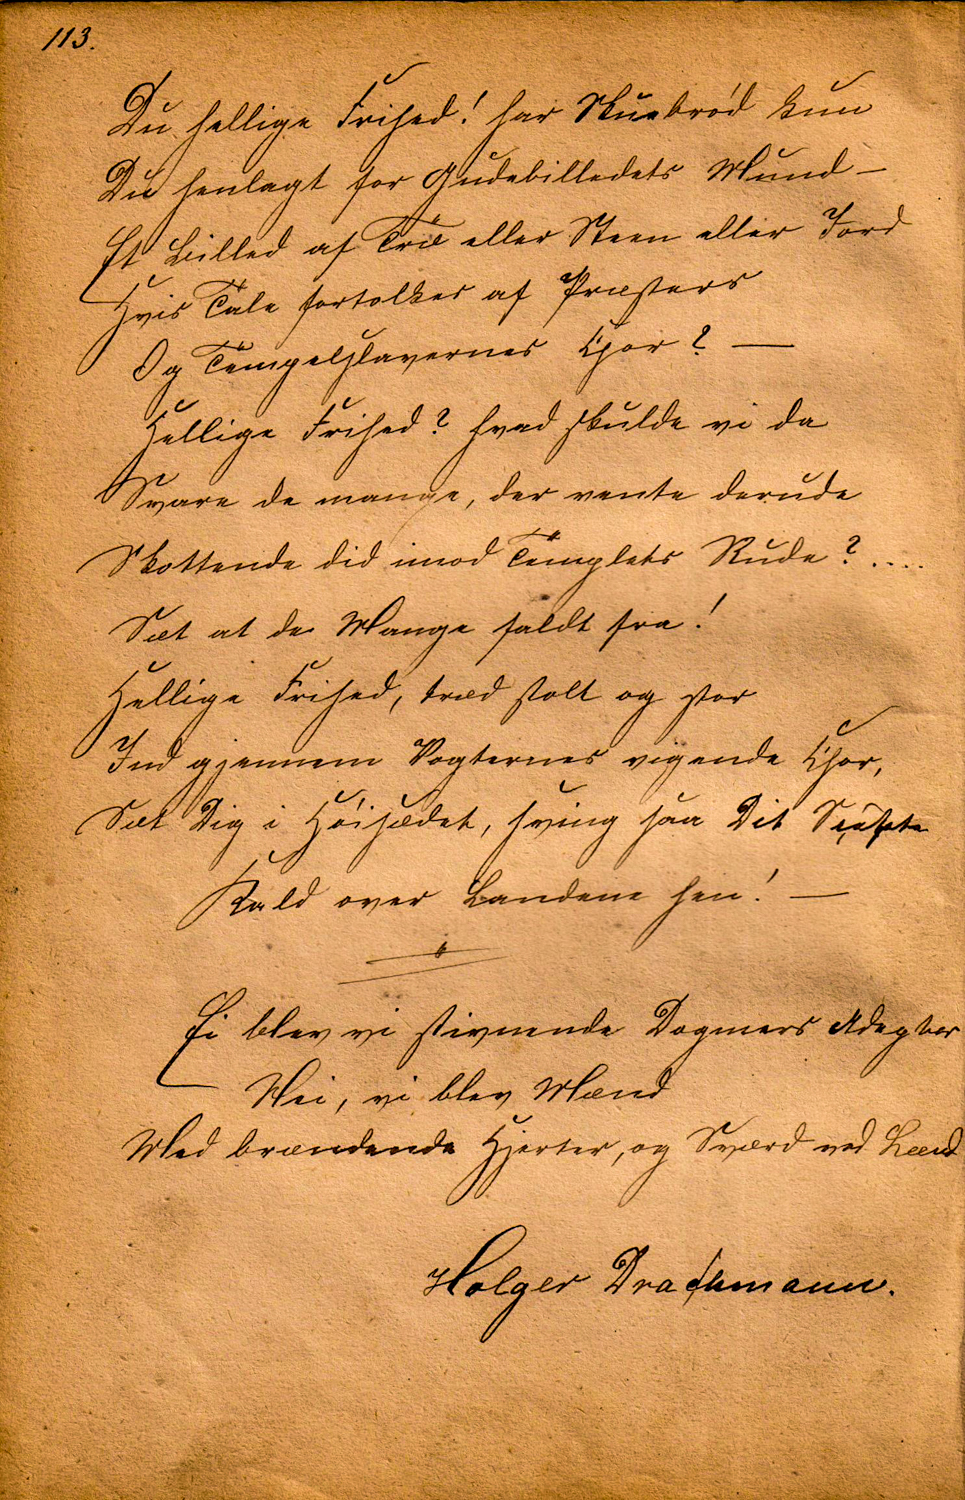 113.
Du hellige Frihed! har Skuebrød kun
Du henlagt for Gudebilledets Mund —
Et Billed af Træ eller Steen eller Jord
Hvis Tale fortolkes af Præsters
Og Tempelslavernes Chor? —
Hellige Frihed? hvad skulde vi da
Svare de mange, der vente derude
Skottende did imod Templets Rude? ....
Sæt at de Mange faldt fra!
Hellige Frihed, træd stolt og stor
Ind gjennem Vogternes vigende Chor,
Sæt Dig i Höisædet, sving saa Dit
Kald over Landene hen! —
Ei blev vi stivnende Dogmers Adepter
Nei, vi blev Mænd
Med brændende Hjerter, og Sværd ved Lænd
Holger Drachmann.